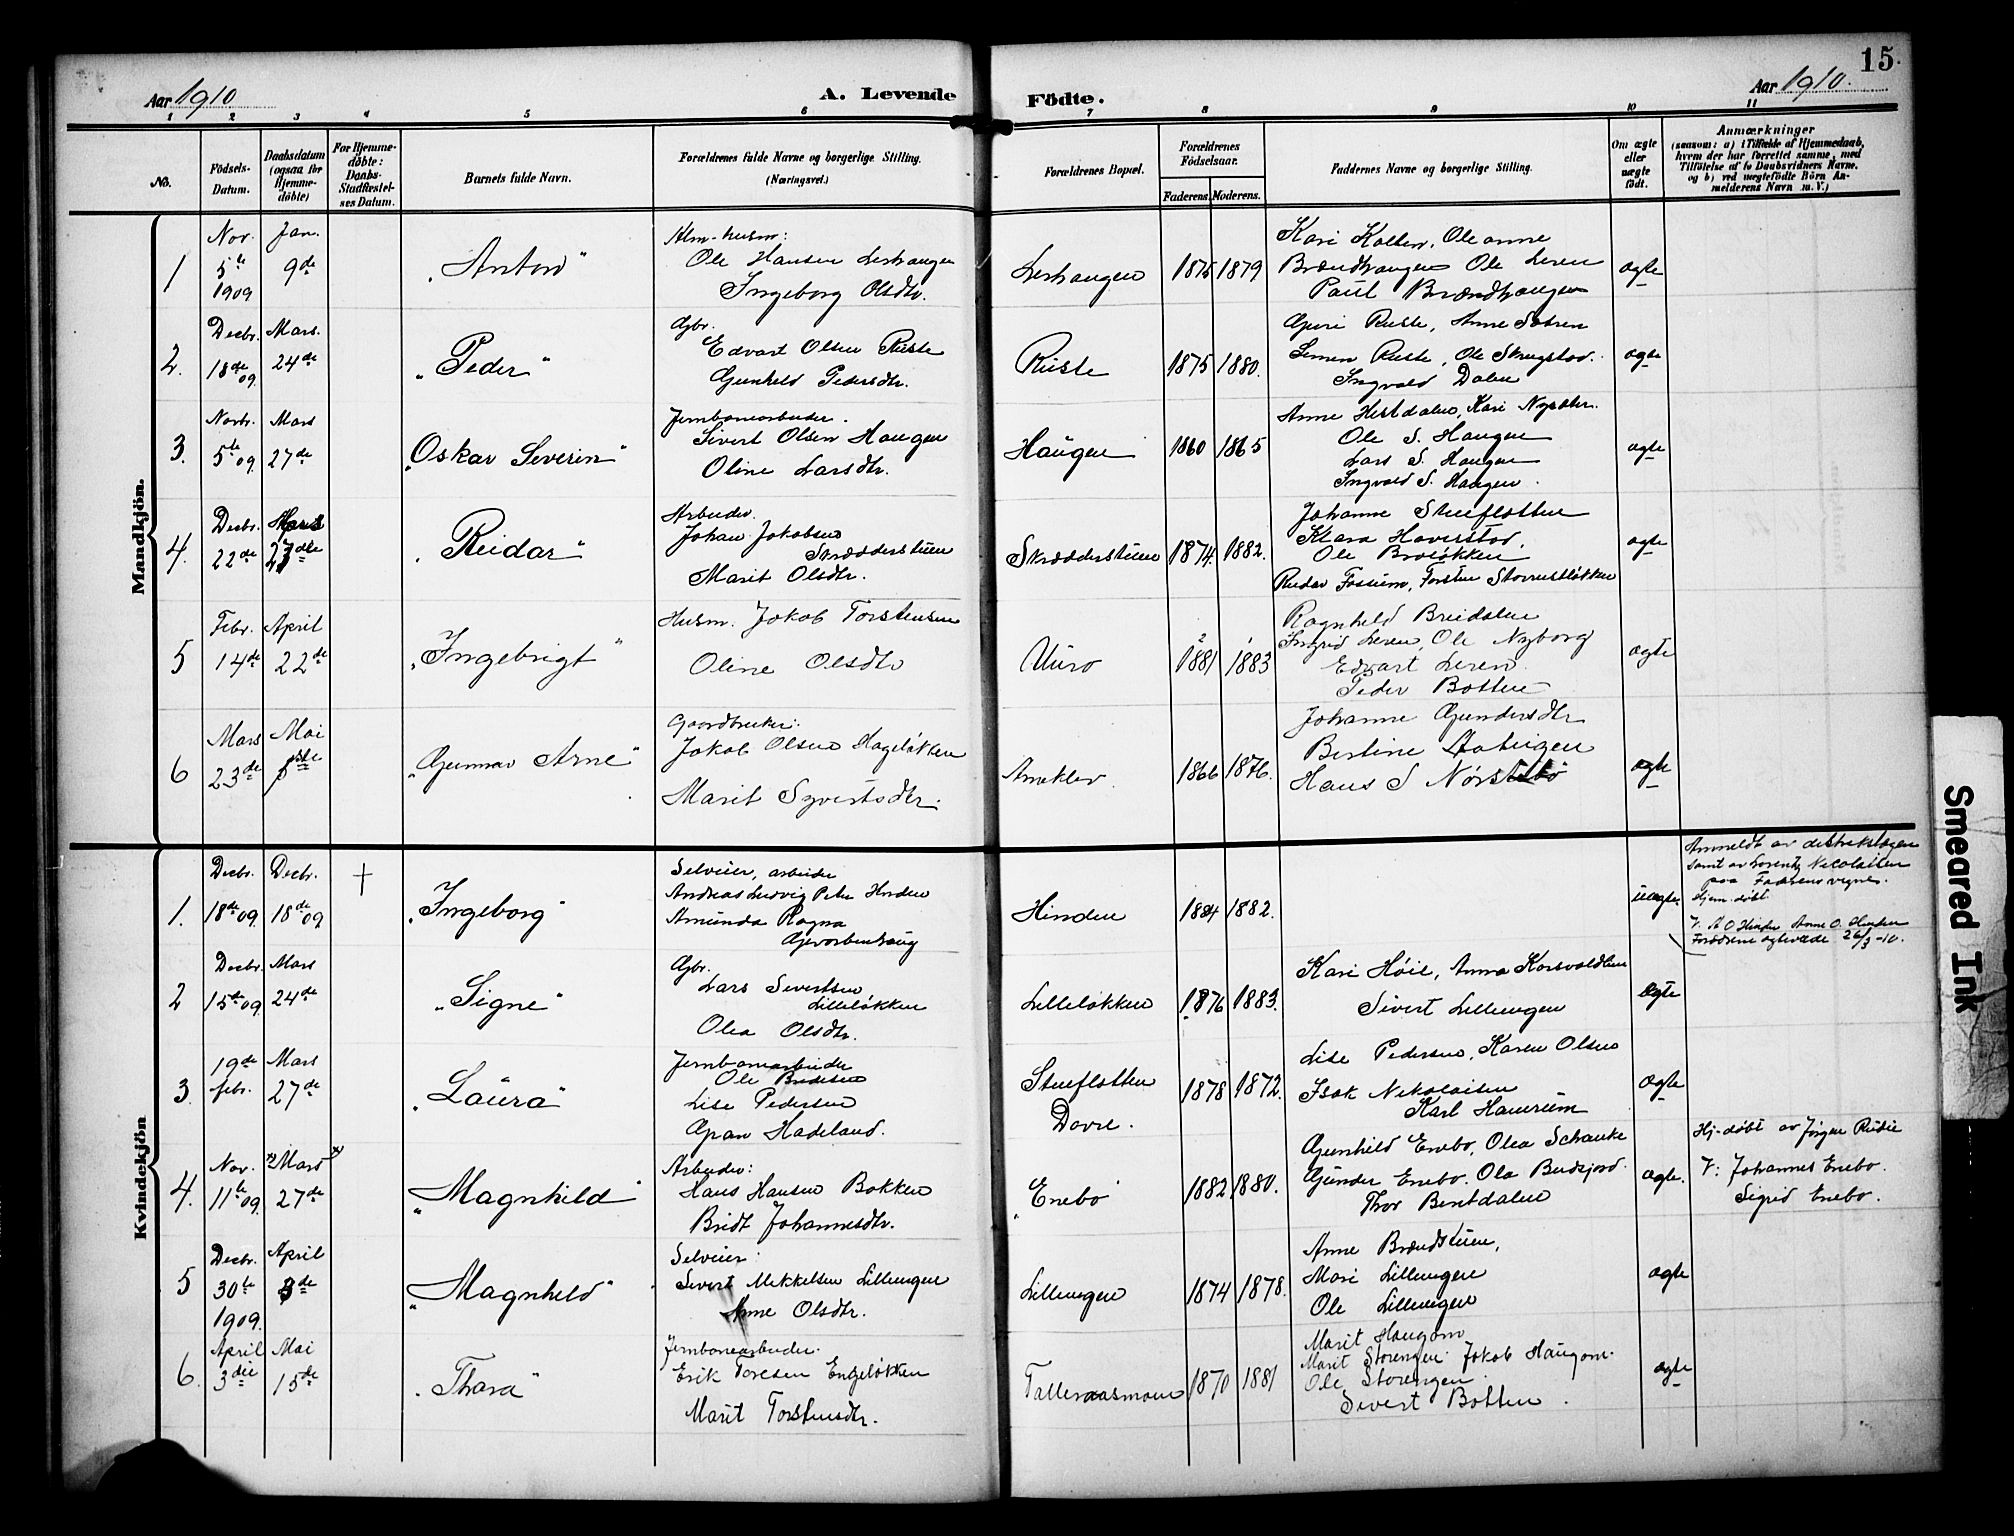 15.
Aar 1910
A. Levende Födte.
Aar 1910.
1 2 3 4 5 6 7 8 9 10 11
No.
Födsels-Datum.
Daabsdatum (ogsaa for Hjemme-døbte)
For Hjemme-døbte: Daabs-Stadfæstel-ses Datum.
Barnets fulde Navn.
Forældrenes fulde Navne og borgerlige Stilling.
(Næringsvei.)
Forældrenes Bopæl.
Forældrenes Födselsaar.
Faderens. Moderens.
Faddernes Navne og borgerlige Stilling.
Om ægte eller uægte født.
Anmærkninger
(saasom: a) i Tilfælde af Hjemmedaab,
hvem der har forrettet samme, med
Tilföielse af to Daabsvidners Navne,
og b) ved uægtefödte Börn An-
melderens Navn m. V.)
Mandkjön.
1
Nov. 5te 1909
Jan. 9de
"Anton"
Ole Hansen
Ingeborg Olsdtr.
1875 1879
Kari Kolten, Oleanne
Brændhaugen Ole Leren
Paul Brændhaugen
ægte
2.
Decbr. 18de 09.
Mars. 24de
"Peder"
Gbr.
Edvart Olsen Ruste
Gunhild Pedersdtr.
Ruste
1875 1880.
Guri Ruste, Anne
Simen Ruste, Ole Skrugstad.
Ingvald Dalen
ægte
3.
Novbr. 5te 09.
Mars 27de
"Oskar Severin"
Jernbanearbeider.
Sivert Olsen Haugen
Oline Larsdtr.
Haugen
1860 1865
Anne Hestdalen, Kari
Ole S. Haugen
Lars S. Haugen
Ingvald S. Haugen.
ægte
4.
Decbr. 22de
Mars 27de
"Reidar"
Arbeider.
Johan Jakobsen
Skrædderstuen
Marit Olsdtr.
Skrædderstuen
1874. 1882.
Johanne Stueflotten
Klara Haverstad.
Ole Broløkken
Reidar Fossum, Torsten
ægte
5
Febr. 14de
April 22de
"Ingebrigt"
Husm. Jakob Torstensen
Oline Olsdtr
Uuro
1881 1883
Ragnhild Breidalen
Ingrid Leren, Ole Nyborg
Edvart Leren.
Peder Botten
ægte
6
Mars 23de
Mai
"Gunnar Arne"
Gaardbruker:
Jakob Olsen Hageløkken
Marit Syvertsdtr.
1866 1876.
Johanne Gundersdtr
Bertine
Hans S
ægte
Kvindekjön
1.
Decbr. 18de 09.
Decbr. 18de 09
+
"Ingeborg"
Selveier, arbeider
Andreas Ludvig Peter Hinden
Amunda Ragna
Hinden
1884 1882.
uægte
Anmeldt av distriktslægen
samt av Lorentz Nicolaisen
paa Faderens vegne.
Hjem. døbt
V. A O Hinden Anne O. Hinden
Forældrene ægteviede 26/3-10.
2
Decbr. 15de 09.
Mars 24de
"Signe"
Gbr.
Lars Sivertsen
Lilleløkken
Olea Olsdtr.
Lilleløkken
1876 1883.
Kari Høie, Anna Korsvoldlien
Sivert Lillengen
Ægte
3
19de febr.
Mars 27de
"Laura"
Jernbanearbeider
Ole
Lise Pedersen
Gran Hadeland.
Stueflotten
Dovre.
1878 1872.
Lise Pedersen, Karen Olsen
Isak Nikolaisen
Karl Hamrum
ægte
4.
Nov. 11te 09.
Mars 27de
"Magnhild"
Arbeider:
Hans Hansen Bakken
Bridt Johannesdtr.
"Enebo"
1882 1880.
Gunhild Enebo, Olea Schanke
Gunder Enebo. Ola
Thor Bentdalen
ægte.
Hj-døbt av Jørgen Rudie
V: Johannes Enebo.
Sigrid Enebo.
5
Decbr. 30te 1909.
April 3de
"Magnhild"
Selveier.
Sivert Mikkelsen Lillengen
Anne Olsdtr.
Lillengen
1874 1878.
Anne Brændstuen,
Mari Lillengen
Ole Lillengen
ægte
6.
April 3die
Mai 15de
"Thora"
Jernbanearbeider.
Erik Toresen Engeløkken
Marit Torstensdtr.
Talleraasmoen
1870 1881
Marit Haugom
Marit Storengen. Jakob Haugom.
Ole Storengen.
Sivert Botten.
ægte
Smeared Ink